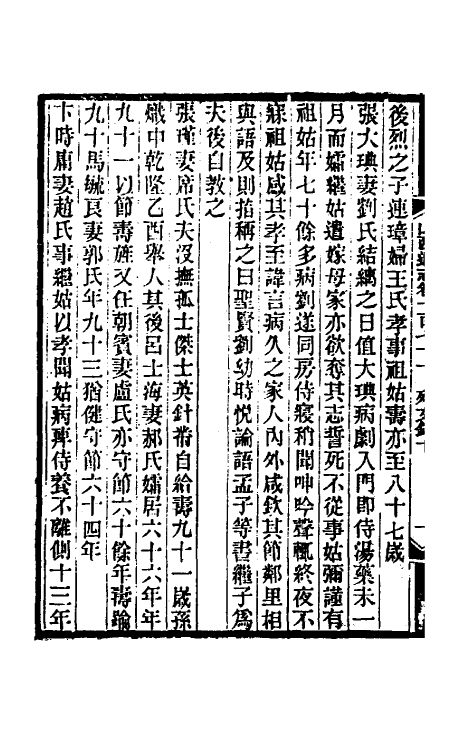 後烈之子連璋婦王氏孝事祖姑壽亦至八十七歲
張大㻞妻劉氏結縭之日值大㻞病劇入門即侍湯藥未一
月而孀繼姑遣嫁母家亦欲奪其志誓死不從事姑彌謹有
祖姑年七十餘多病劉遂同房侍寢稍聞呻吟聲輒終夜不
寐祖姑感其孝至諱言病久之家人內外咸欽其節鄰里相
與語及則指稱之曰聖賢劉幼時悅論語孟子等書繼子為
夫後自教之
張瑾妻席氏夫沒撫孤士傑士英針黹自給壽九十一歲孫
熾中乾隆乙酉舉人其後呂士海妻郝氏孀居六十六年年
九十一以節壽旌又任朝賓妻盧氏亦守節六十餘年壽踰
九十馬毓良妻郭氏年九十三猶健守節六十四年
卞時庸妻趙氏事繼姑以孝聞姑病痺侍養不離側十三年